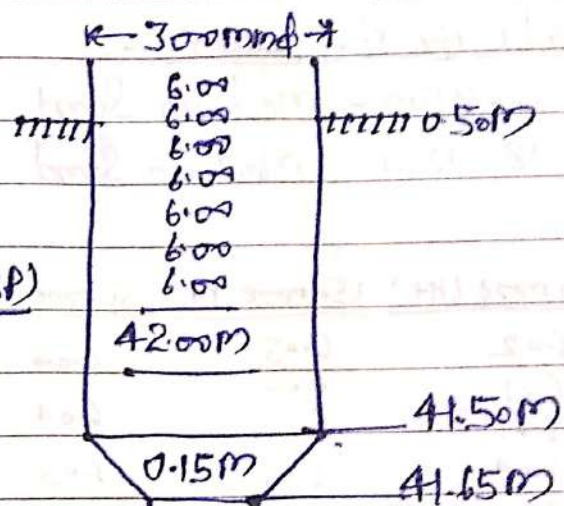 300mmϕ
6.00
6.00
6.00
6.00
6.00
6.00
6.00
0.50M
42.00M
41.50M
0.15M
41.65M